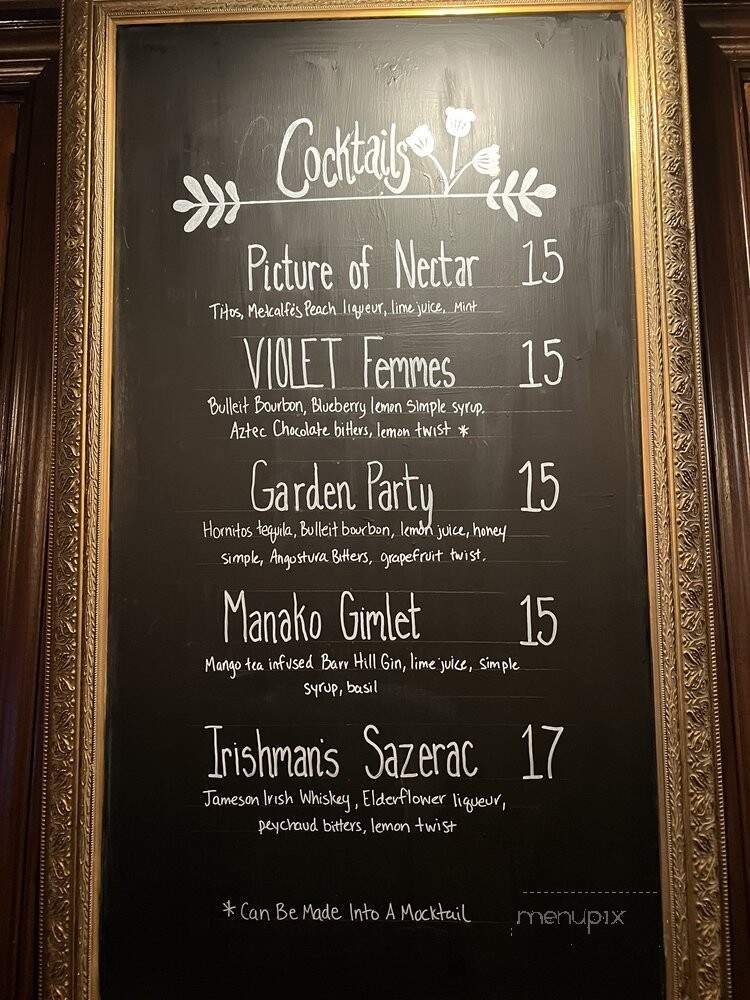 Cocktails
Picture of Nectar 15
Titos, Metcalfe's Peach liqueur, lime juice, Mint
VIOLET Femmes 15
Bulleit Bourbon, Blueberry lemon Simple syrup.
Aztec Chocolate bitters, lemon twist *
Garden Party 15
Hornitos tequila, Bulleit bourbon, lemon juice, honey
simple, Angostura Bitters, grapefruit twist.
Manako Gimlet 15
Mango tea infused Barr Hill Gin, lime juice, simple
syrup, basil
Irishman's Sazerac 17
Jameson Irish Whiskey, Elderflower liqueur,
peychaud bitters, lemon twist
*Can Be Made Into A Mocktail
menupix